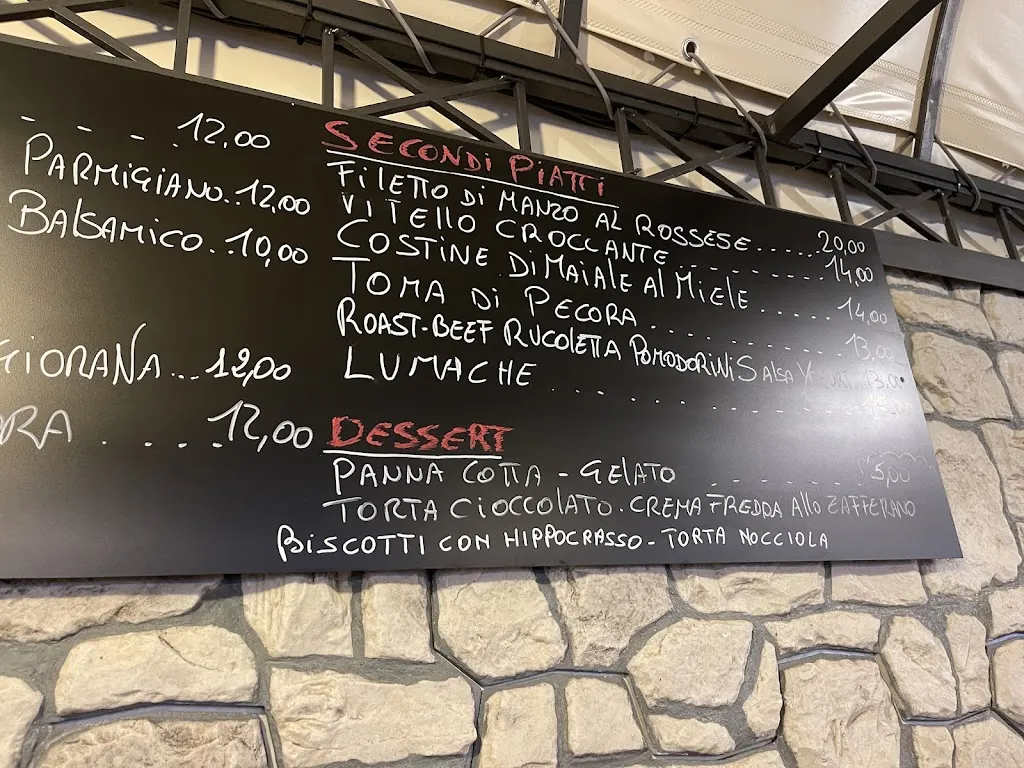 - - - . 12,00
PARMIGIANO..12,00
BALSAMICO.10,00
GIORANA...12,00
ORA . . . . . 12,00
SECONDI PIATTI
FILETTO DI MANZO AL ROSSESE......20,00
VITELLO CROCCANTE - - - - - - - - 14,00
COSTINE DI MAIALE AL MIELE ...... 14,00
TOMA DI PECORA . - - - - - - - - 13,00
ROAST-BEEF RUCOLETTA POMODORINI SALSA 13,00
LUMACHE
DESSERT
PANNA COTTA - GELATO - - - - - - 5,00
TORTA CIOCCOLATO. CREMA FREDDA ALLO ZAFFERANO
BISCOTTI CON HIPPOCRASSO - TORTA NOCCIOLA